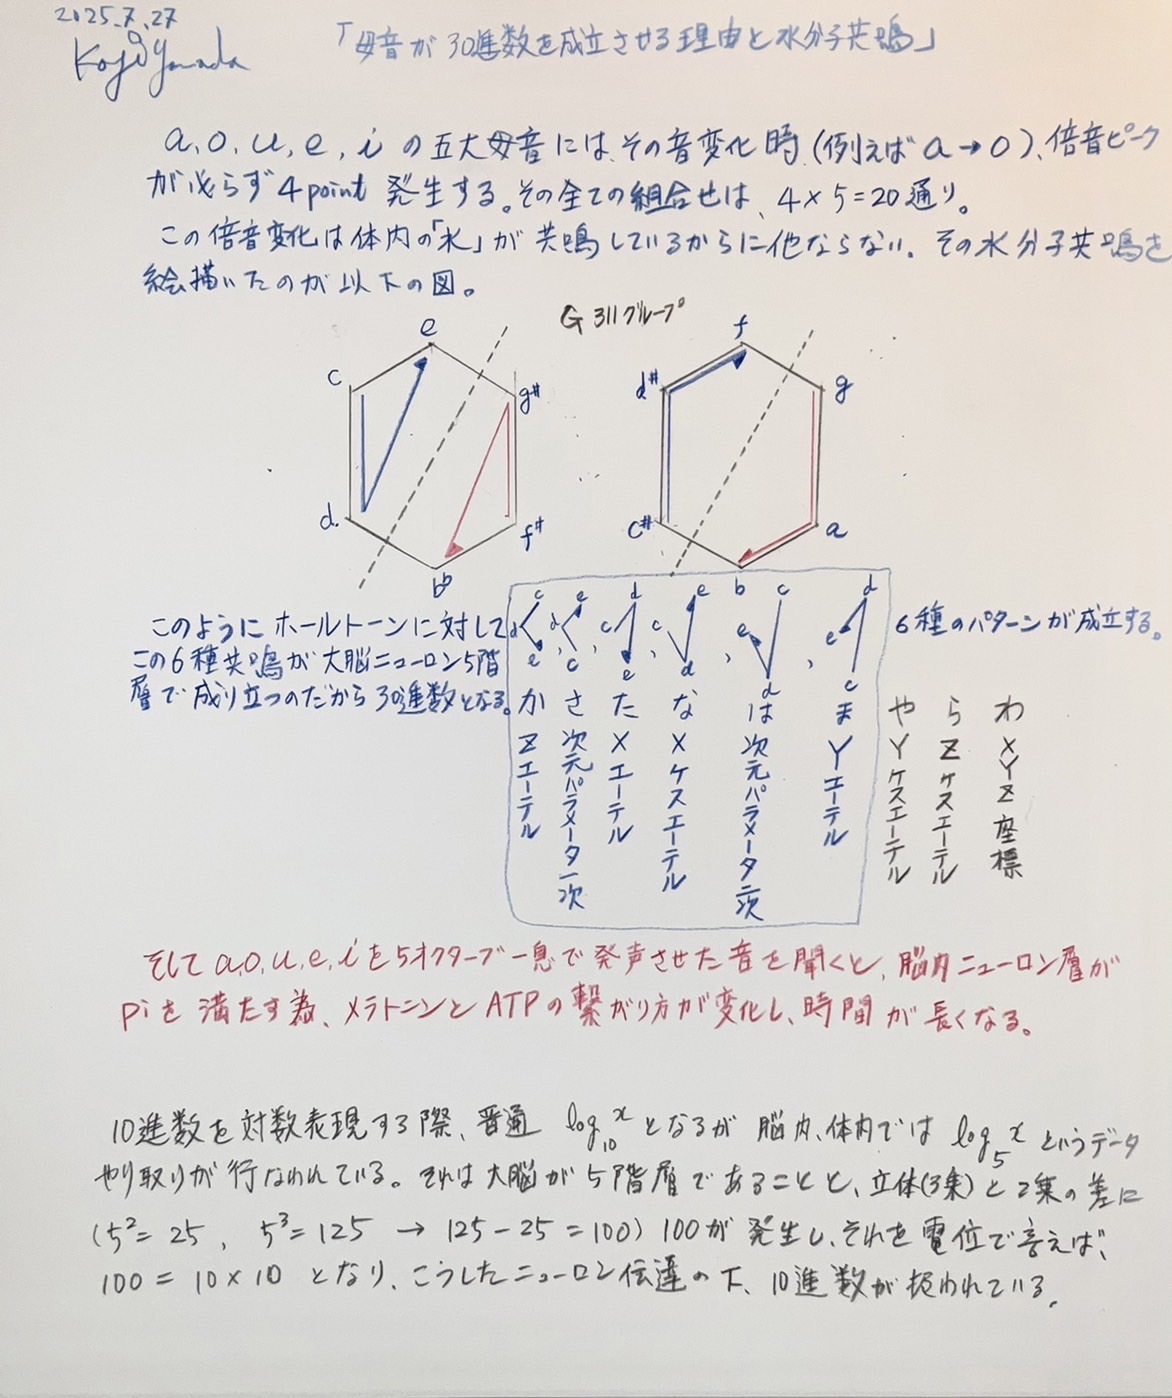 2025.7.27
Koji Yamada
「母音が30進数を成立させる理由と水分子共鳴」
a, o, u, e, i の五大母音には、その音変化時(例えば a→o)、倍音ピーク
が必らず4point 発生する。その全ての組合せは、4×5=20通り。
この倍音変化は体内の「水」が共鳴しているからに他ならない。その水分子共鳴を
絵描いたのが以下の図。
G 311グループ
e
c
g#
d
f#
b♭
f
d#
g
c#
a
b
このようにホールトーンに対して
この6種共鳴が大脳ニューロン5階
層で成り立つのだから30進数となる。
c d e
e d c
d c e
c e d
c e d
d e c
6種のパターンが成立する。
か さ た な は ま や ら わ
Zエーテル
次元パラメータ一次
Xエーテル
Xケスエーテル
次元パラメータ二次
Yエーテル
Yケスエーテル
Zケスエーテル
XYZ座標
そして a,o,u,e,i を5オクターブ一息で発声させた音を聞くと、脳内ニューロン層が
Piを満たす為、メラトニンとATPの繋がり方が変化し、時間が長くなる。
10進数を対数表現する際、普通 log₁₀x となるが 脳内、体内では log₅x というデータ
やり取りが行なわれている。それは大脳が5階層であることと、立体(3乗)と2乗の差に
(5²=25, 5³=125 → 125-25=100) 100が発生し、それを電位で言えば、
100=10×10 となり、こうしたニューロン伝達の下、10進数が扱われている。